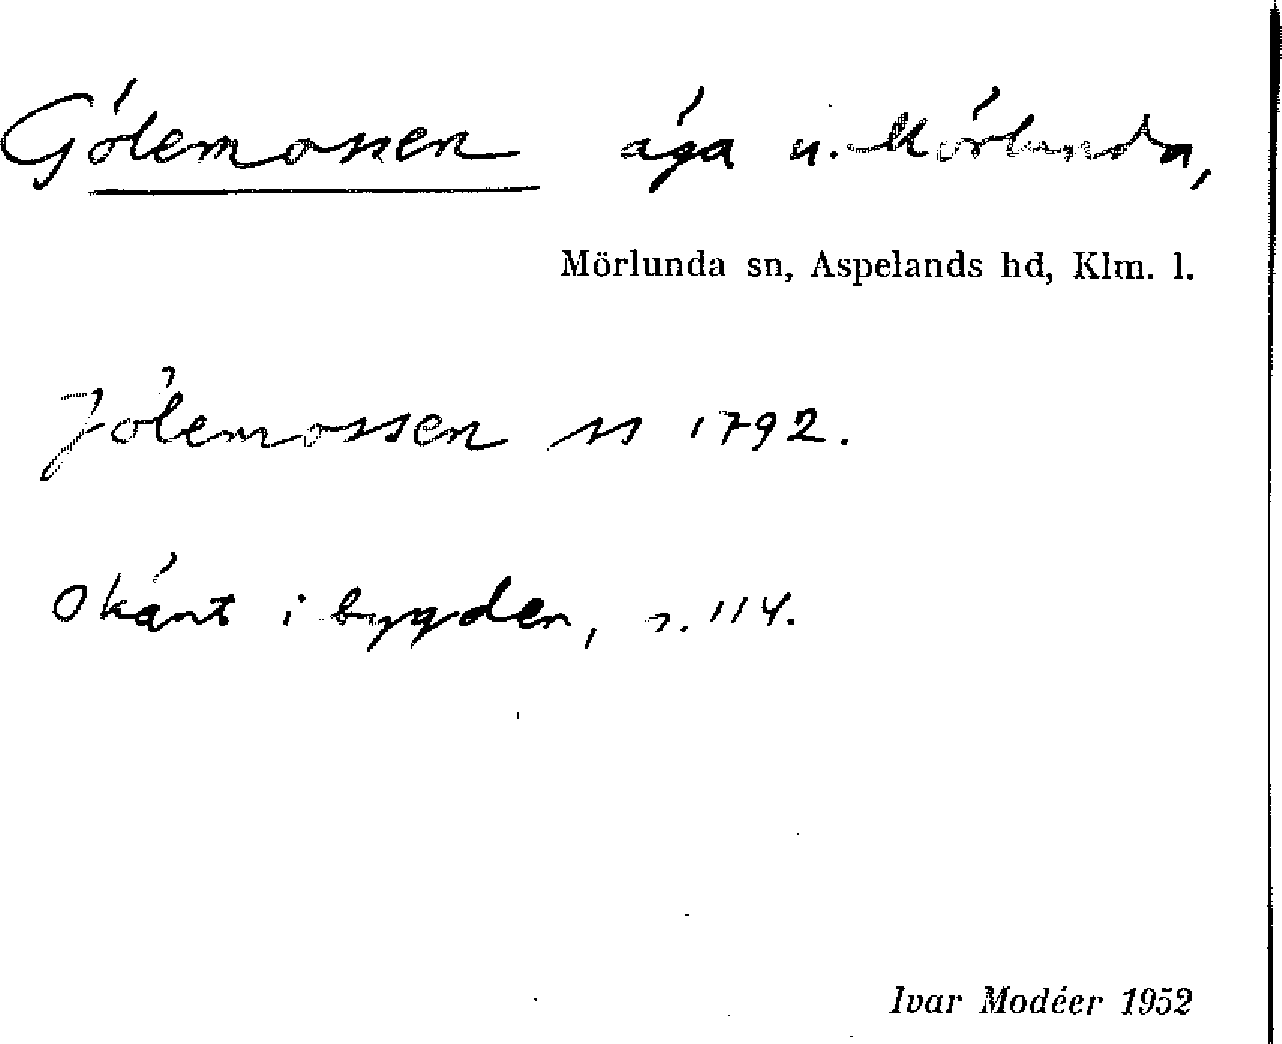 Gölemossen äga u. Mörlunda,
Mörlunda sn, Aspelands hd, Klm. l.
Jölemossen ss 1792.
Okänt i bygden, s. 114.
Ivar Modéer 1952